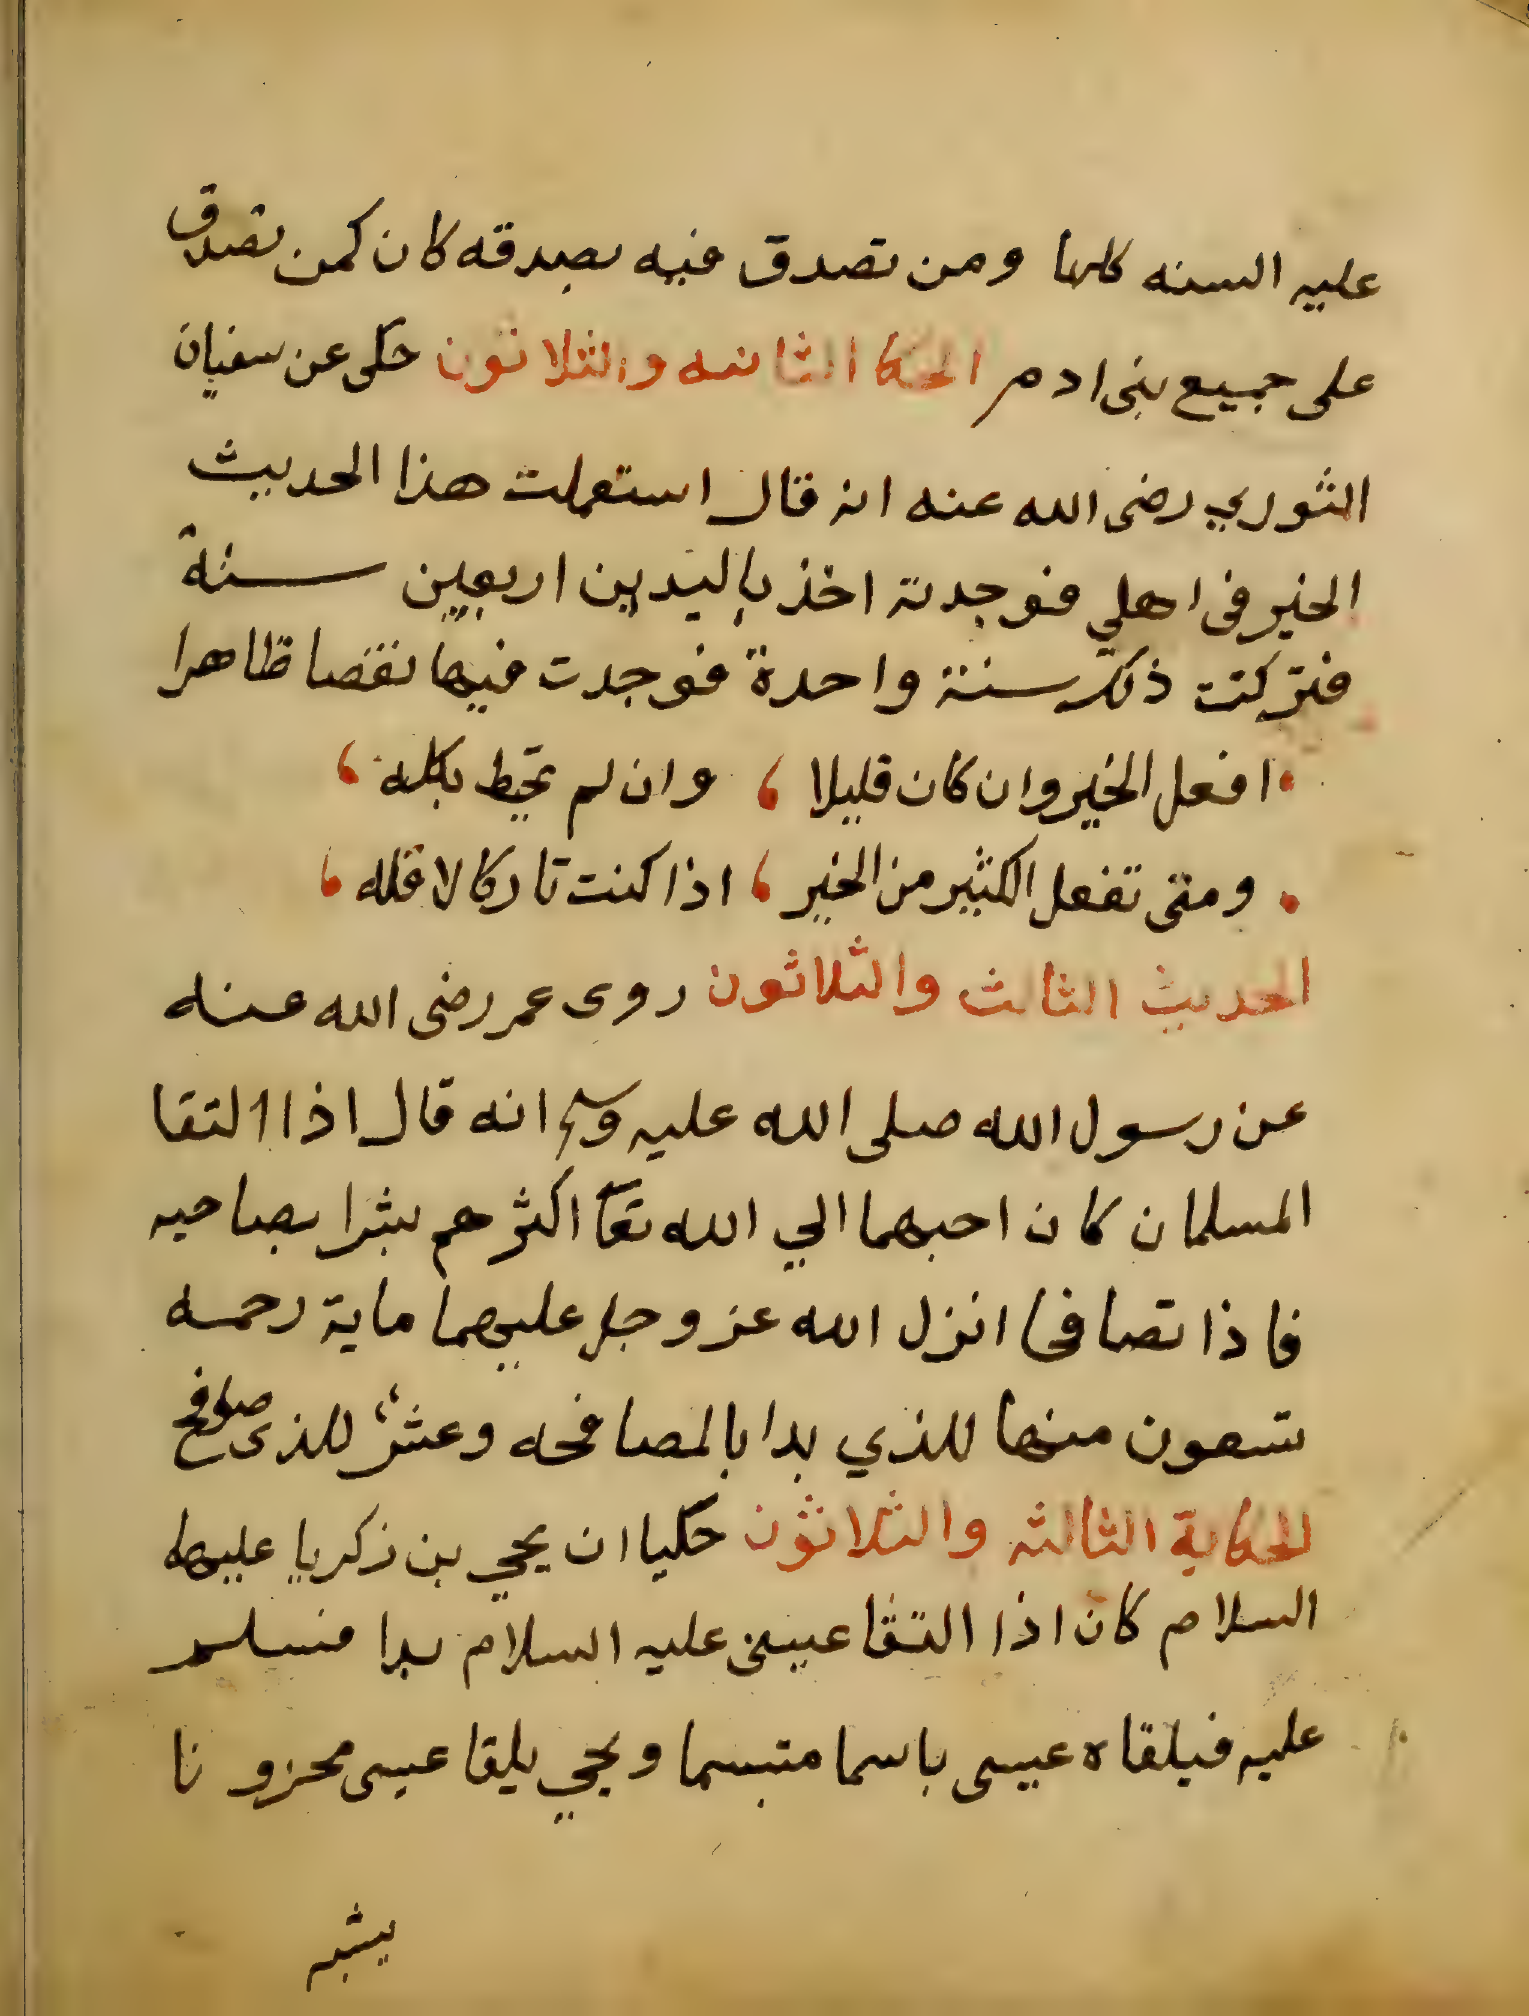 عليه السنه كلها ومن تصدق فيه بصدقه كان كمن تصدق
على جميع بنى ادم الحكا الثانيه والثلاثون حكى عن سفيان
الثوري رضى الله عنه انه قال استعملت هذا الحديث
الخبر فى اهلي فوجدته اخذ باليدين اربعين سنة
فتركت ذلك سنة واحدة فوجدت فيها نقصا ظاهرا
افعل الخير وان كان قليلا ، وان لم تحيط بكله ،
ومتى تفعل الكثير من الخير ، اذا كنت تاركا لاقله ،
الحديث الثالث والثلاثون روى عمر رضى الله عنه
عن رسول الله صلى الله عليه وسلم انه قال اذا التقا
المسلمان كان احبهما الي الله تعا اكثرهم بشرا بصاحبه
فاذا تصافحا انزل الله عز وجل عليهما ماية رحمه
تسعون منها للذي بدا بالمصافحه وعشر للذى صوفح
الحكاية الثالثه والثلاثون حكيا ان يحيي بن زكريا عليهما
السلام كان اذا التقا عيسى عليه السلام بدا فسلم
عليه فيلقاه عيسى باسما متبسما ويحيي يلقا عيسى محزونا
يشبه